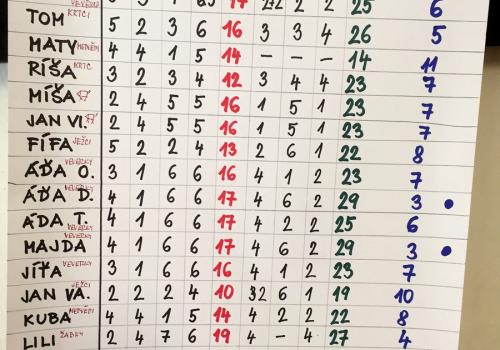 VEVERKY 17 2 2 25 6
TOM KRTCI 5 2 3 6 16 3 3 4 26 5
MATY 4 4 1 5 14 – – – 14 11
RÍŠA KRTC 3 2 3 4 12 3 4 4 23 7
MÍŠA 2 4 5 5 16 1 5 1 23 7
JAN VI. 2 4 5 5 16 1 5 1 23 7
FÍFA JEŽCI 5 2 2 4 13 2 6 1 22 8
ÁĎA O. VEVERKY 3 1 6 6 16 4 1 2 23 7
ÁĎA D. VEVERKY 4 1 6 6 17 4 6 2 29 3 •
ÁDA T. 4 1 6 6 17 4 2 2 25 6
MAJDA VEVERKY 4 1 6 6 17 4 6 2 29 3 •
JÍŤA VEVERKY 3 1 6 6 16 4 1 2 23 7
JAN VA. JEŽCI 2 2 2 4 10 2 6 1 19 10
KUBA 4 4 1 5 14 4 2 2 22 8
LILI ŽABKY 2 4 7 6 19 4 – 4 27 4